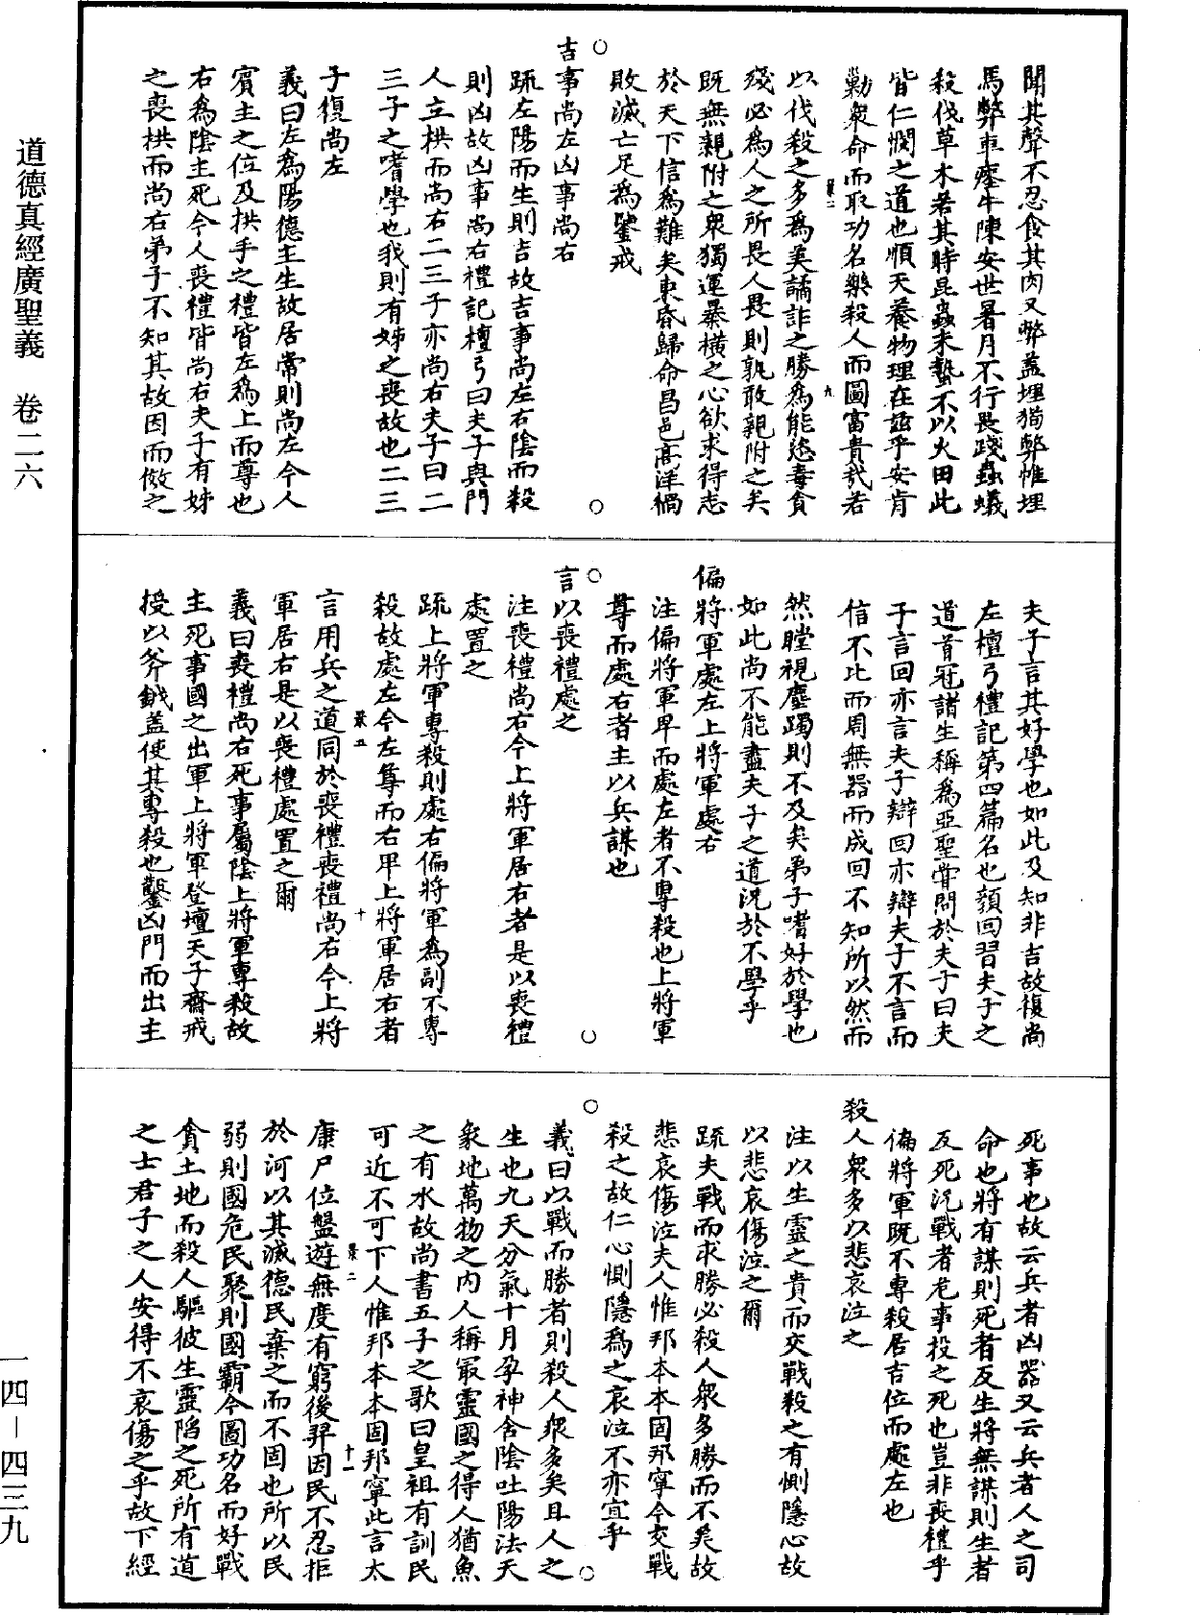 道德真經廣聖義　卷二六
聞其聲不忍食其肉又弊蓋埋狗弊帷埋
馬弊車瘞牛陳安世暑月不行畏踐蟲蟻
殺伐草木若其時昆蟲未蟄不以火田此
皆仁憫之道也順天養物理在茲乎安肯
勦衆命而取功名樂殺人而圖富貴哉若
以伐殺之多爲美譎詐之勝爲能恣毒貪
殘必爲人之所畏人畏則孰敢親附之矣
既無親附之衆獨運暴橫之心欲求得志
於天下信爲難矣東昏歸命昌邑高洋禍
敗滅亡足爲鑒戒
吉事尚左凶事尚右
疏左陽而生則吉故吉事尚左右陰而殺
則凶故凶事尚右禮記檀弓曰夫子與門
人立拱而尚右二三子亦尚右夫子曰二
三子之嗜學也我則有姊之喪故也二三
子復尚左
義曰左爲陽德主生故居常則尚左今人
賓主之位及拱手之禮皆左爲上而尊也
右爲陰主死今人喪禮皆尚右夫子有姊
之喪拱而尚右弟子不知其故因而倣之
夫子言其好學也如此及知非吉故復尚
左檀弓禮記第四篇名也顏回習夫子之
道首冠諸生稱爲亞聖嘗問於夫子曰夫
子言回亦言夫子辯回亦辯夫子不言而
信不比而周無器而成回不知所以然而
然瞠視塵躅則不及矣弟子嗜好於學也
如此尚不能盡夫子之道況於不學乎
偏將軍處左上將軍處右
注偏將軍卑而處左者不專殺也上將軍
尊而處右者主以兵謀也
言以喪禮處之
注喪禮尚右今上將軍居右者是以喪禮
處置之
疏上將軍專殺則處右偏將軍爲副不專
殺故處左今左尊而右卑上將軍居右者
言用兵之道同於喪禮喪禮尚右今上將
軍居右是以喪禮處置之爾
義曰喪禮尚右死事屬陰上將軍專殺故
主死事國之出軍上將軍登壇天子齋戒
授以斧鉞蓋使其專殺也鑿凶門而出主
死事也故云兵者凶器又云兵者人之司
命也將有謀則死者反生將無謀則生者
反死況戰者危事投之死也豈非喪禮乎
偏將軍既不專殺居吉位而處左也
殺人衆多以悲哀泣之
注以生靈之貴而交戰殺之有惻隱心故
以悲哀傷泣之爾
疏夫戰而求勝必殺人衆多勝而不美故
悲哀傷泣夫人惟邦本本固邦寧今交戰
殺之故仁心惻隱爲之哀泣不亦宜乎
義曰以戰而勝者則殺人衆多矣且人之
生也九天分氣十月孕神含陰吐陽法天
象地萬物之內人稱最靈國之得人猶魚
之有水故尚書五子之歌曰皇祖有訓民
可近不可下人惟邦本本固邦寧此言太
康尸位盤遊無度有窮后羿因民不忍拒
於河以其滅德民棄之而不固也所以民
弱則國危民聚則國霸今圖功名而好戰
貪土地而殺人驅彼生靈陷之死所有道
之士君子之人安得不哀傷之乎故下經
一四－四三九